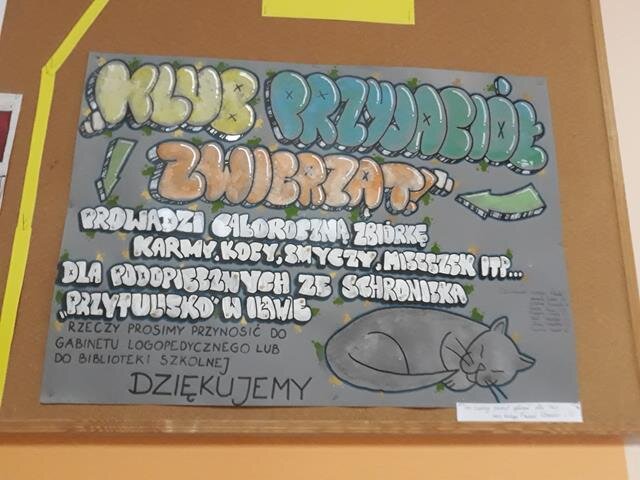 KLUB PRZYJACIÓŁ
ZWIERZĄT!
PROWADZI CAŁOROCZNĄ ZBIÓRKĘ
KARMY, KOCY, SMYCZY, MISECZEK ITP...
DLA PODOPIECZNYCH ZE SCHRONISKA
„PRZYTULISKO" W IŁAWIE
RZECZY PROSIMY PRZYNOSIĆ DO
GABINETU LOGOPEDYCZNEGO LUB
DO BIBLIOTEKI SZKOLNEJ
DZIĘKUJEMY